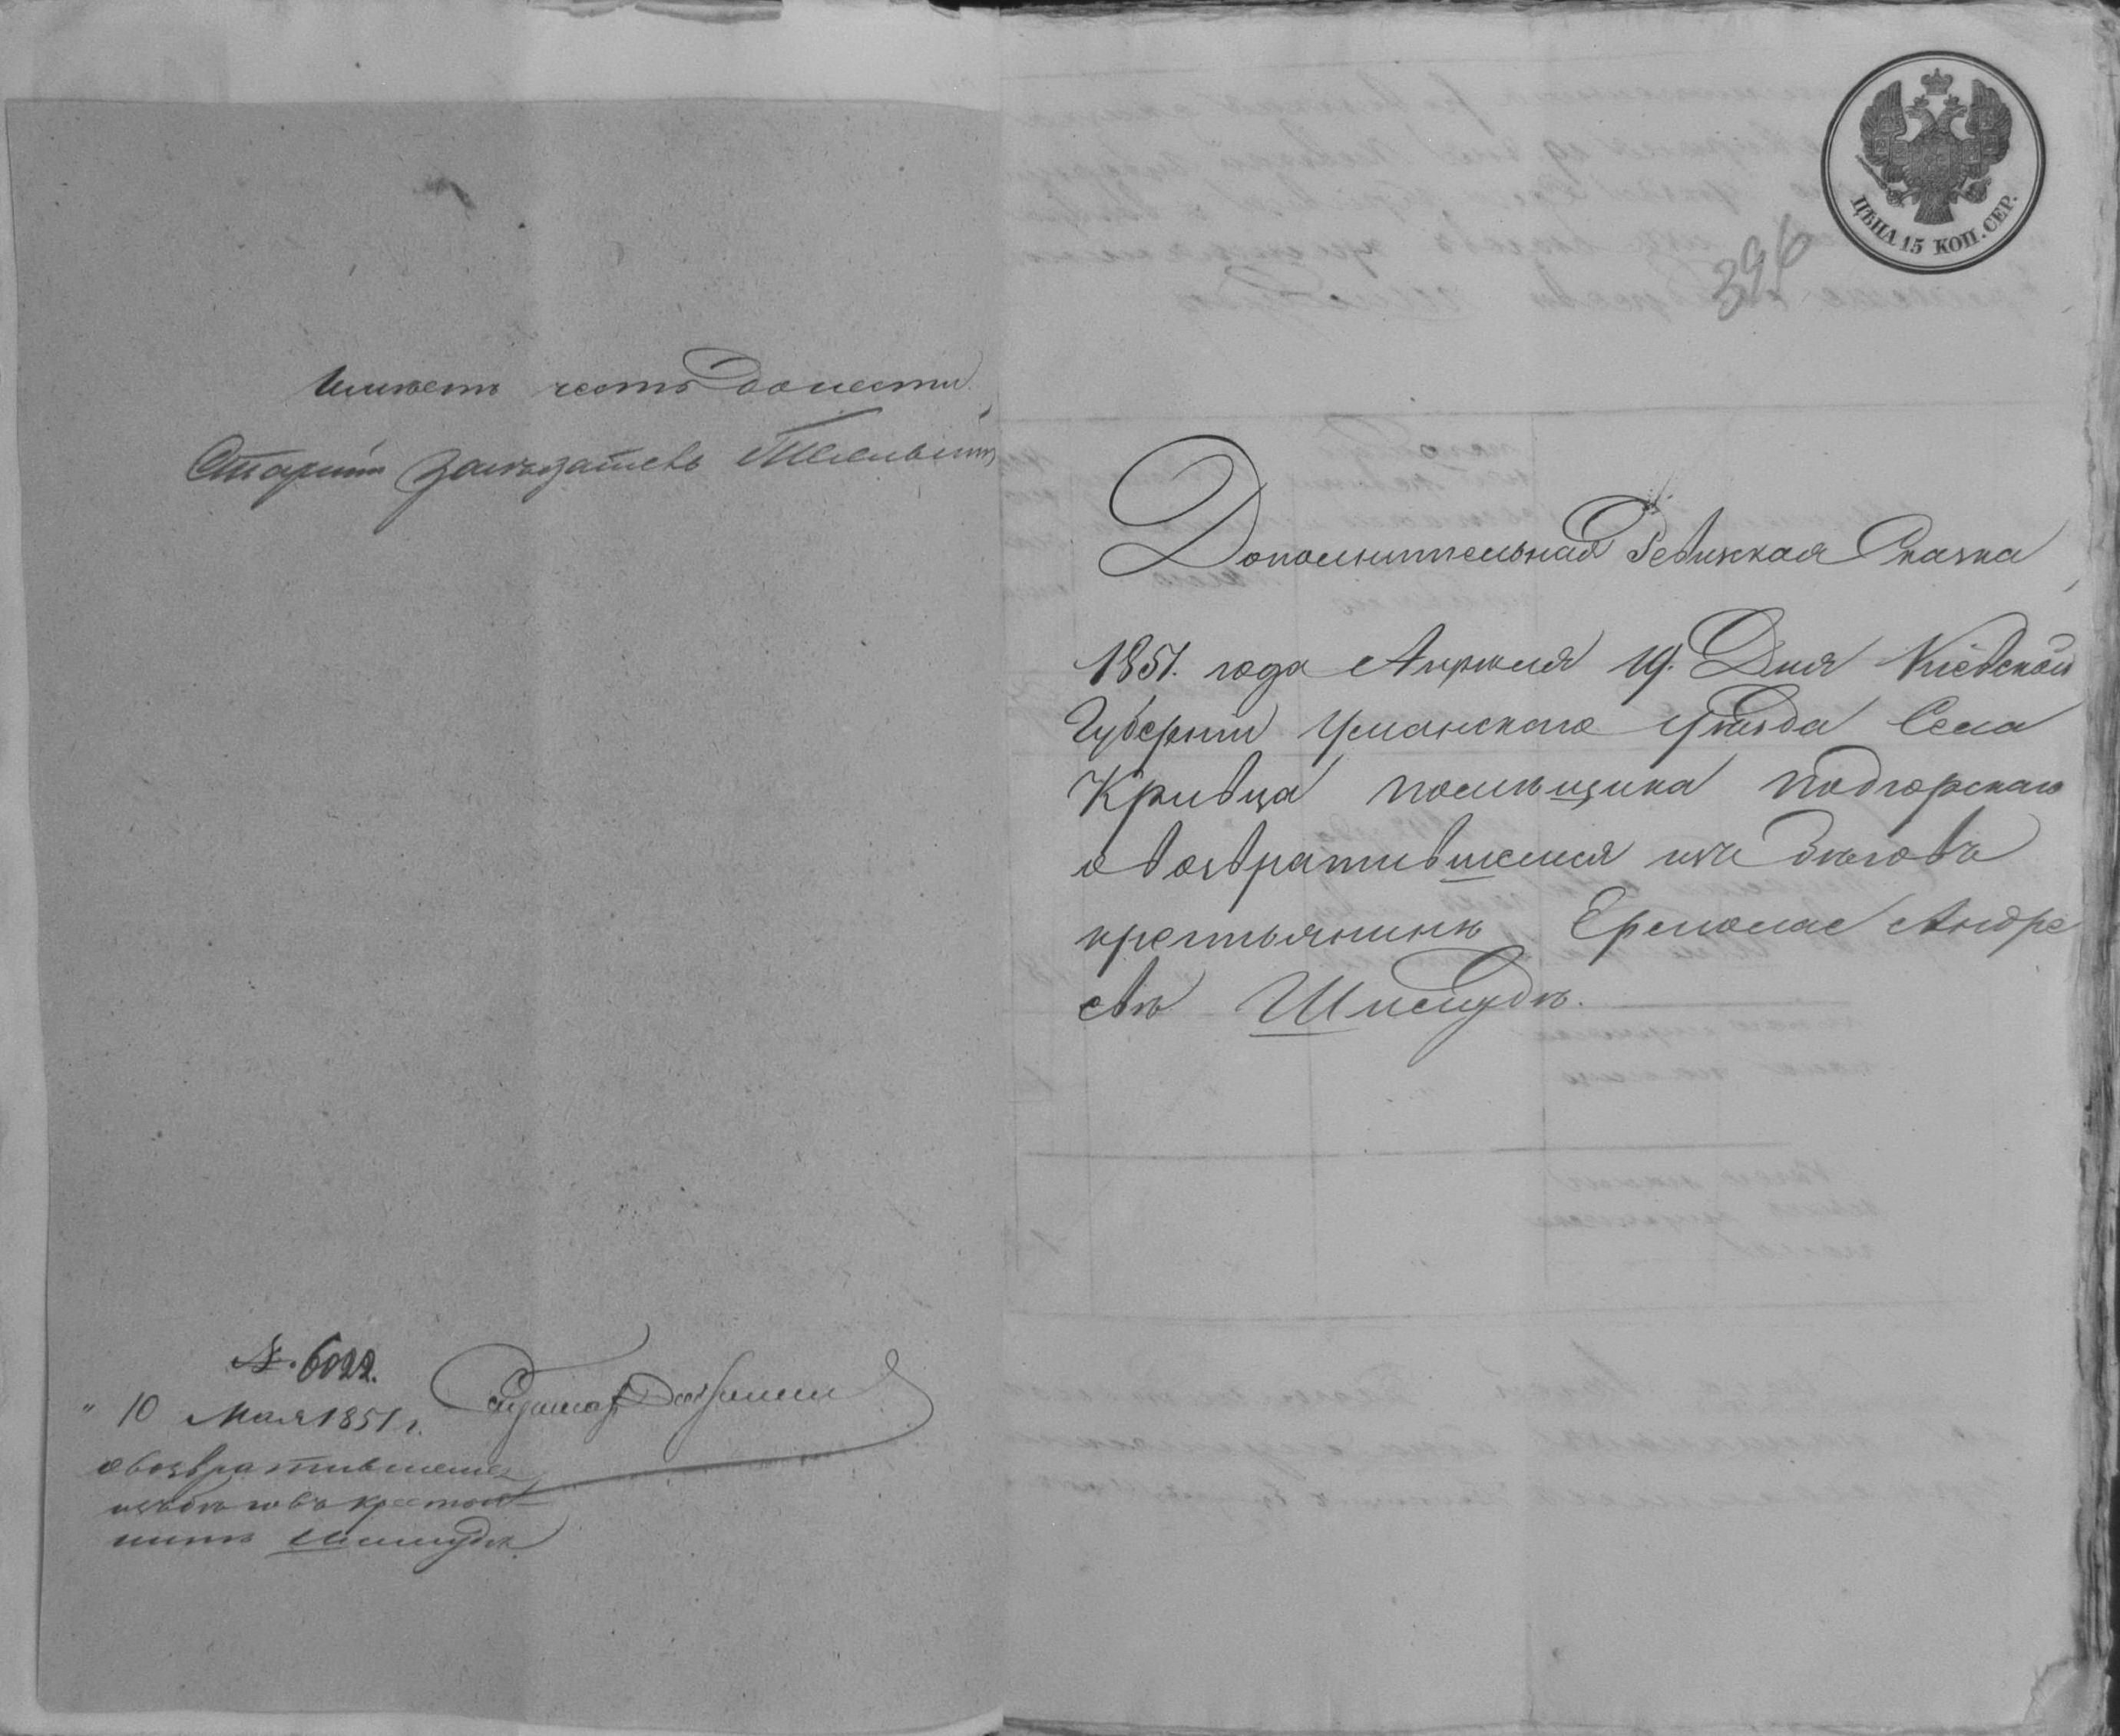 имѣетъ честь донести.
Старшій Засѣдатель
№. 6022.
"10 Мая 1851 г.
о возвратившемся
изъ бѣговъ крестья-
нинѣ
ЦѢНА 15 КОП. СЕР.
396
Дополнительная Ревизкая Сказка
1851. года Апрѣля 19. Дня Кіевской
Губерніи Уманскаго Уѣзда Села
Кривца помѣщика Подгорскаго
о возвратившемся изъ бѣговъ
крестьянинѣ Ермолае Андре
евѣ